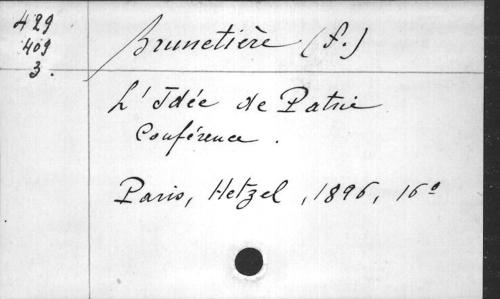 429
409
3.
Brunetière (F.)
L'Idée de Patrie
Conférence.
Paris, Hetzel, 1896, 16º